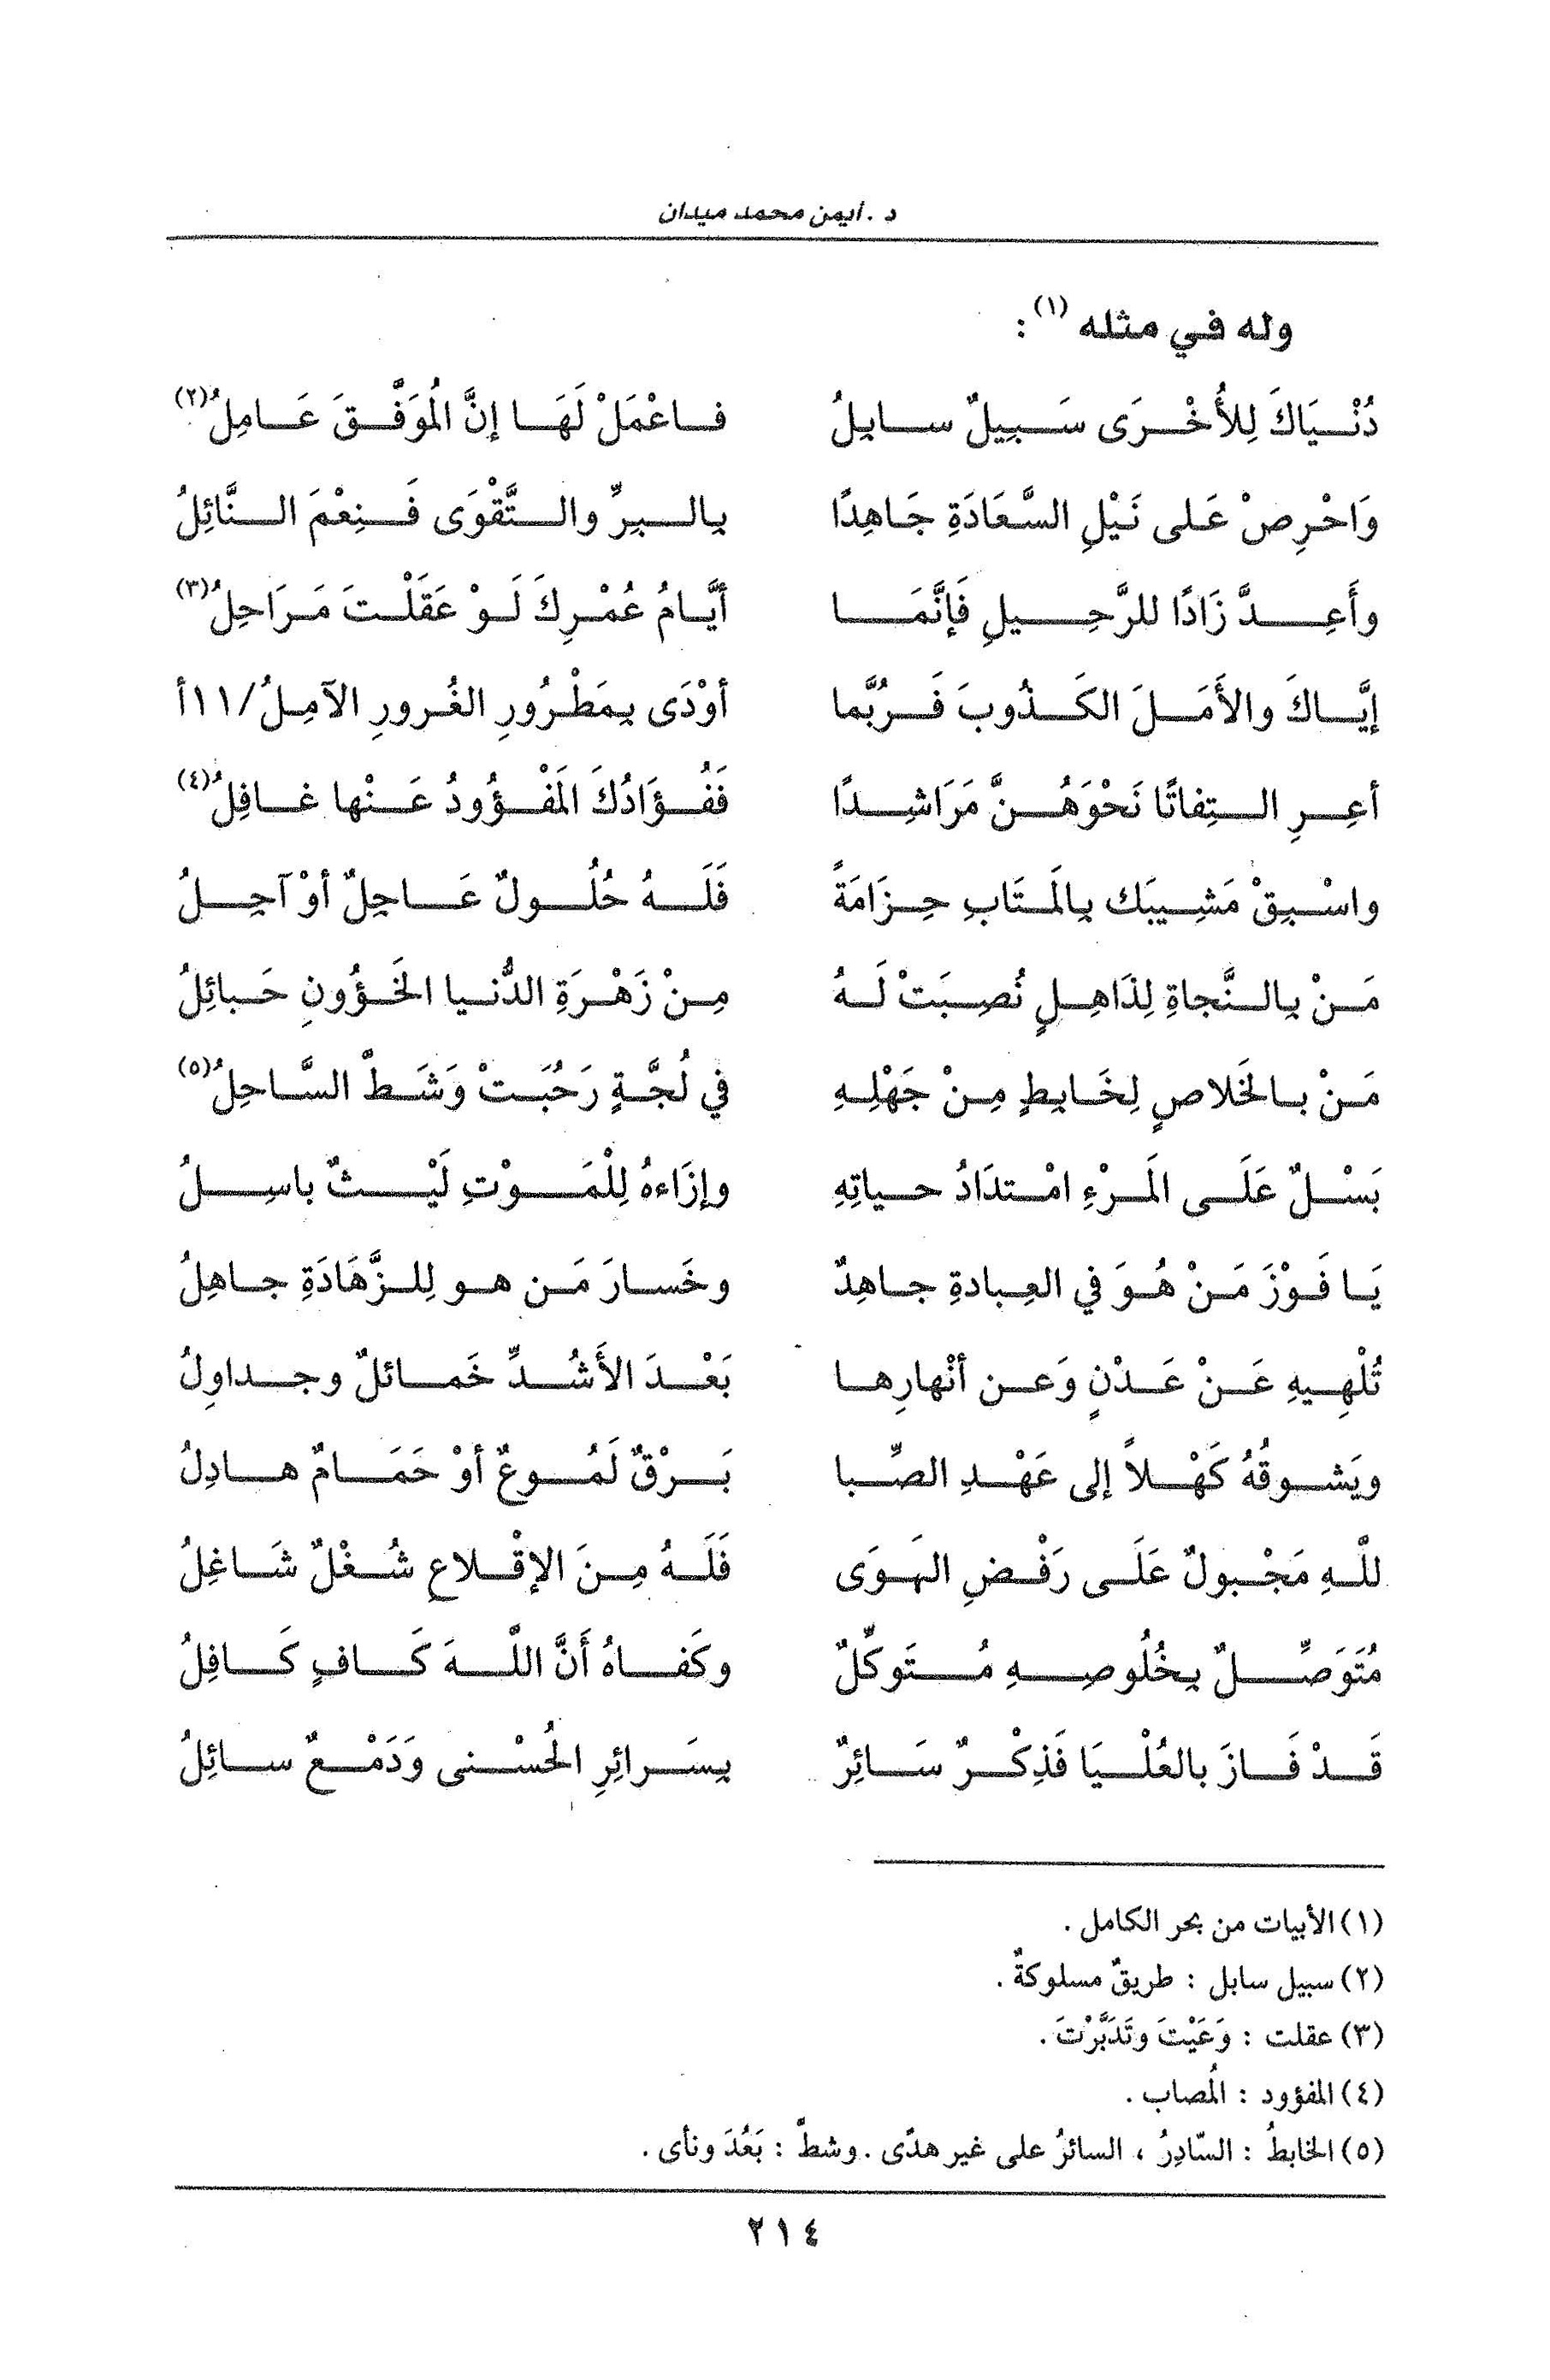 د . أيمن محمد ميدان
وله في مثله (١) :
دُنْيَاكَ لِلأُخْرَى سَبِيلٌ سابِلُ فاعْمَلْ لَهَا إنَّ المُوَفَّقَ عَامِلُ(٢)
وَاحْرِصْ عَلى نَيْلِ السَّعَادَةِ جَاهِدًا بِالبِرِّ والتَّقْوَى فَنِعْمَ النَّائِلُ
وأَعِدَّ زَادًا للرَّحِيلِ فَإنَّمَا أيَّامُ عُمْرِكَ لَوْ عَقَلْتَ مَرَاحِلُ(٣)
إيَّاكَ والأَمَلَ الكَذُوبَ فَرُبَّما أوْدَى بِمَطْرُورِ الغُرورِ الآمِلُ/١١أ
أعِرِ التِفاتًا نَحْوَهُنَّ مَرَاشِدًا فَفُؤَادُكَ المَفْؤُودُ عَنْها غافِلُ(٤)
واسْبِقْ مَشِيبَك بِالمَتَابِ حِزَامَةً فَلَهُ حُلُولٌ عَاجِلٌ أوْ آجِلُ
مَنْ بِالنَّجاةِ لِذَاهِلٍ نُصِبَتْ لَهُ مِنْ زَهْرَةِ الدُّنيا الخَؤُونِ حَبائِلُ
مَنْ بالخَلاصِ لِخَابِطٍ مِنْ جَهْلِهِ في لُجَّةٍ رَحُبَتْ وَشَطَّ السَّاحِلُ(٥)
بَسْلٌ عَلَى المَرْءِ امْتدَادُ حياتِهِ وإزَاءهُ لِلْمَوْتِ لَيْثٌ باسِلُ
يَا فَوْزَ مَنْ هُوَ في العِبادةِ جاهِدٌ وخَسارَ مَن هو لِلزَّهَادَةِ جاهِلُ
تُلْهِيهِ عَنْ عَدْنٍ وَعن أنْهارِها بَعْدَ الأَشُدِّ خَمائلٌ وجداوِلُ
ويَشوقُهُ كَهْلاً إلى عَهْدِ الصِّبا بَرْقٌ لَمُوعٌ أوْ حَمَامٌ هادِلُ
للّهِ مَجْبولٌ عَلَى رَفْضِ الهَوَى فَلَهُ مِنَ الإقْلاعِ شُغْلٌ شَاغِلُ
مُتَوَصِّلٌ بِخُلُوصِهِ مُتَوكِّلٌ وكَفاهُ أَنَّ اللّهَ كَافٍ كَافِلُ
قَدْ فَازَ بالعُلْيَا فَذِكْرٌ سَائِرٌ بِسَرائِرِ الحُسْنى وَدَمْعٌ سائِلُ
(١) الأبيات من بحر الكامل .
(٢) سبيل سابل : طريقٌ مسلوكةٌ .
(٣) عقلت : وَعَيْتَ وتَدَبَّرْتَ .
(٤) المفؤود : المُصاب .
(٥) الخابطُ : السّادِرُ ، السائرُ على غير هدًى . وشطّ : بَعُدَ ونأى .
٢١٤